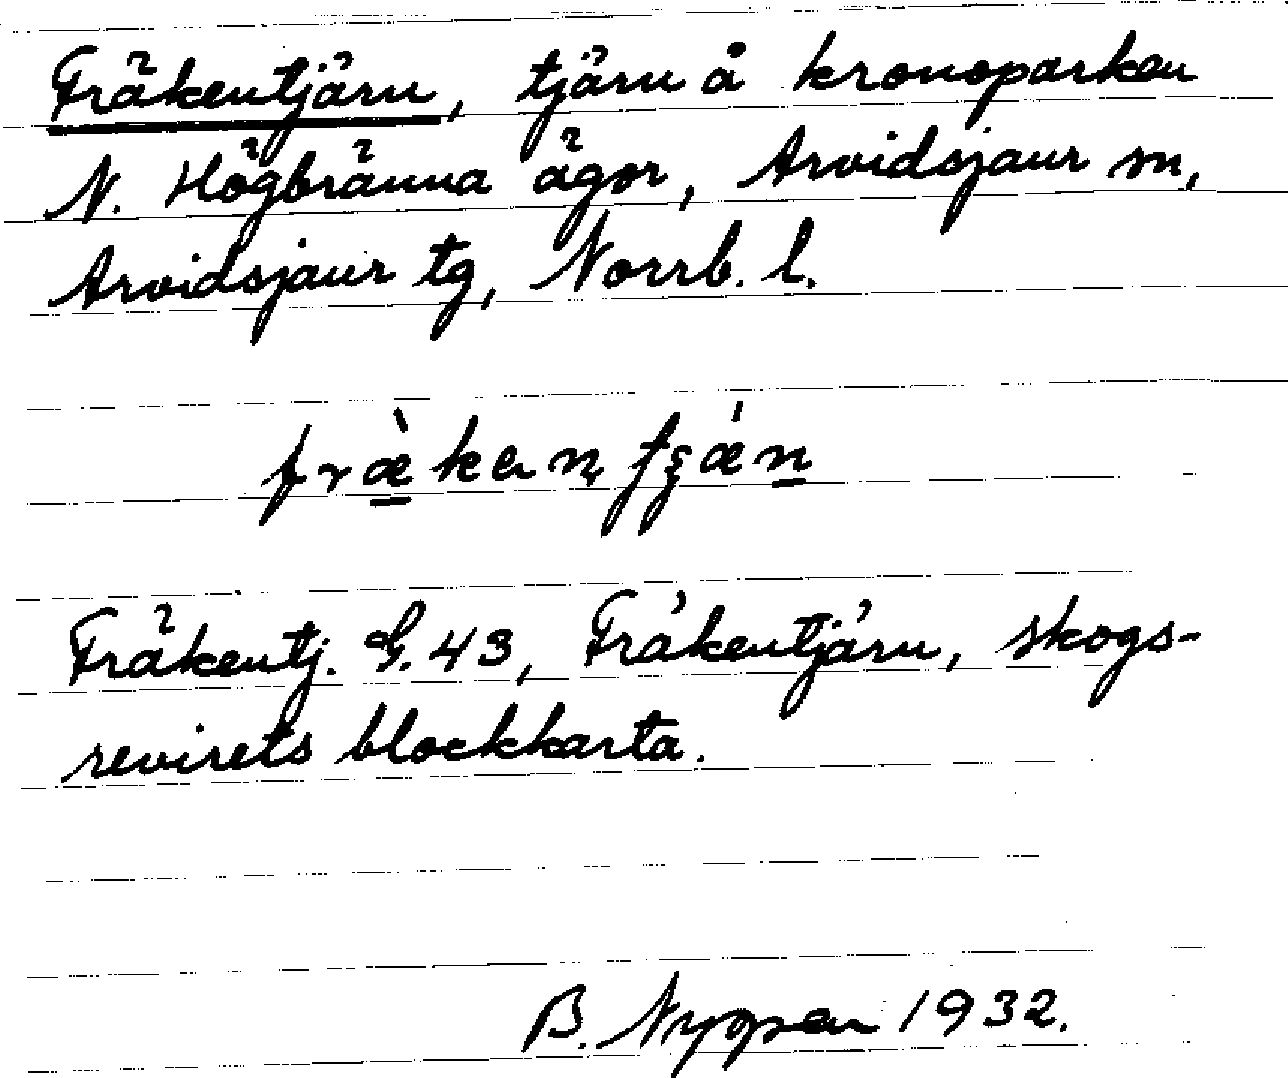 Fräkentjärn, tjärn å kronoparken
N. Högbränna ägor, Arvidsjaur sn,
Arvidsjaur tg, Norrb. l.
Fräkentj. G. 43, Fräkentjärn, skogs-
revirets blockkarta.
B. Nygren 1932.